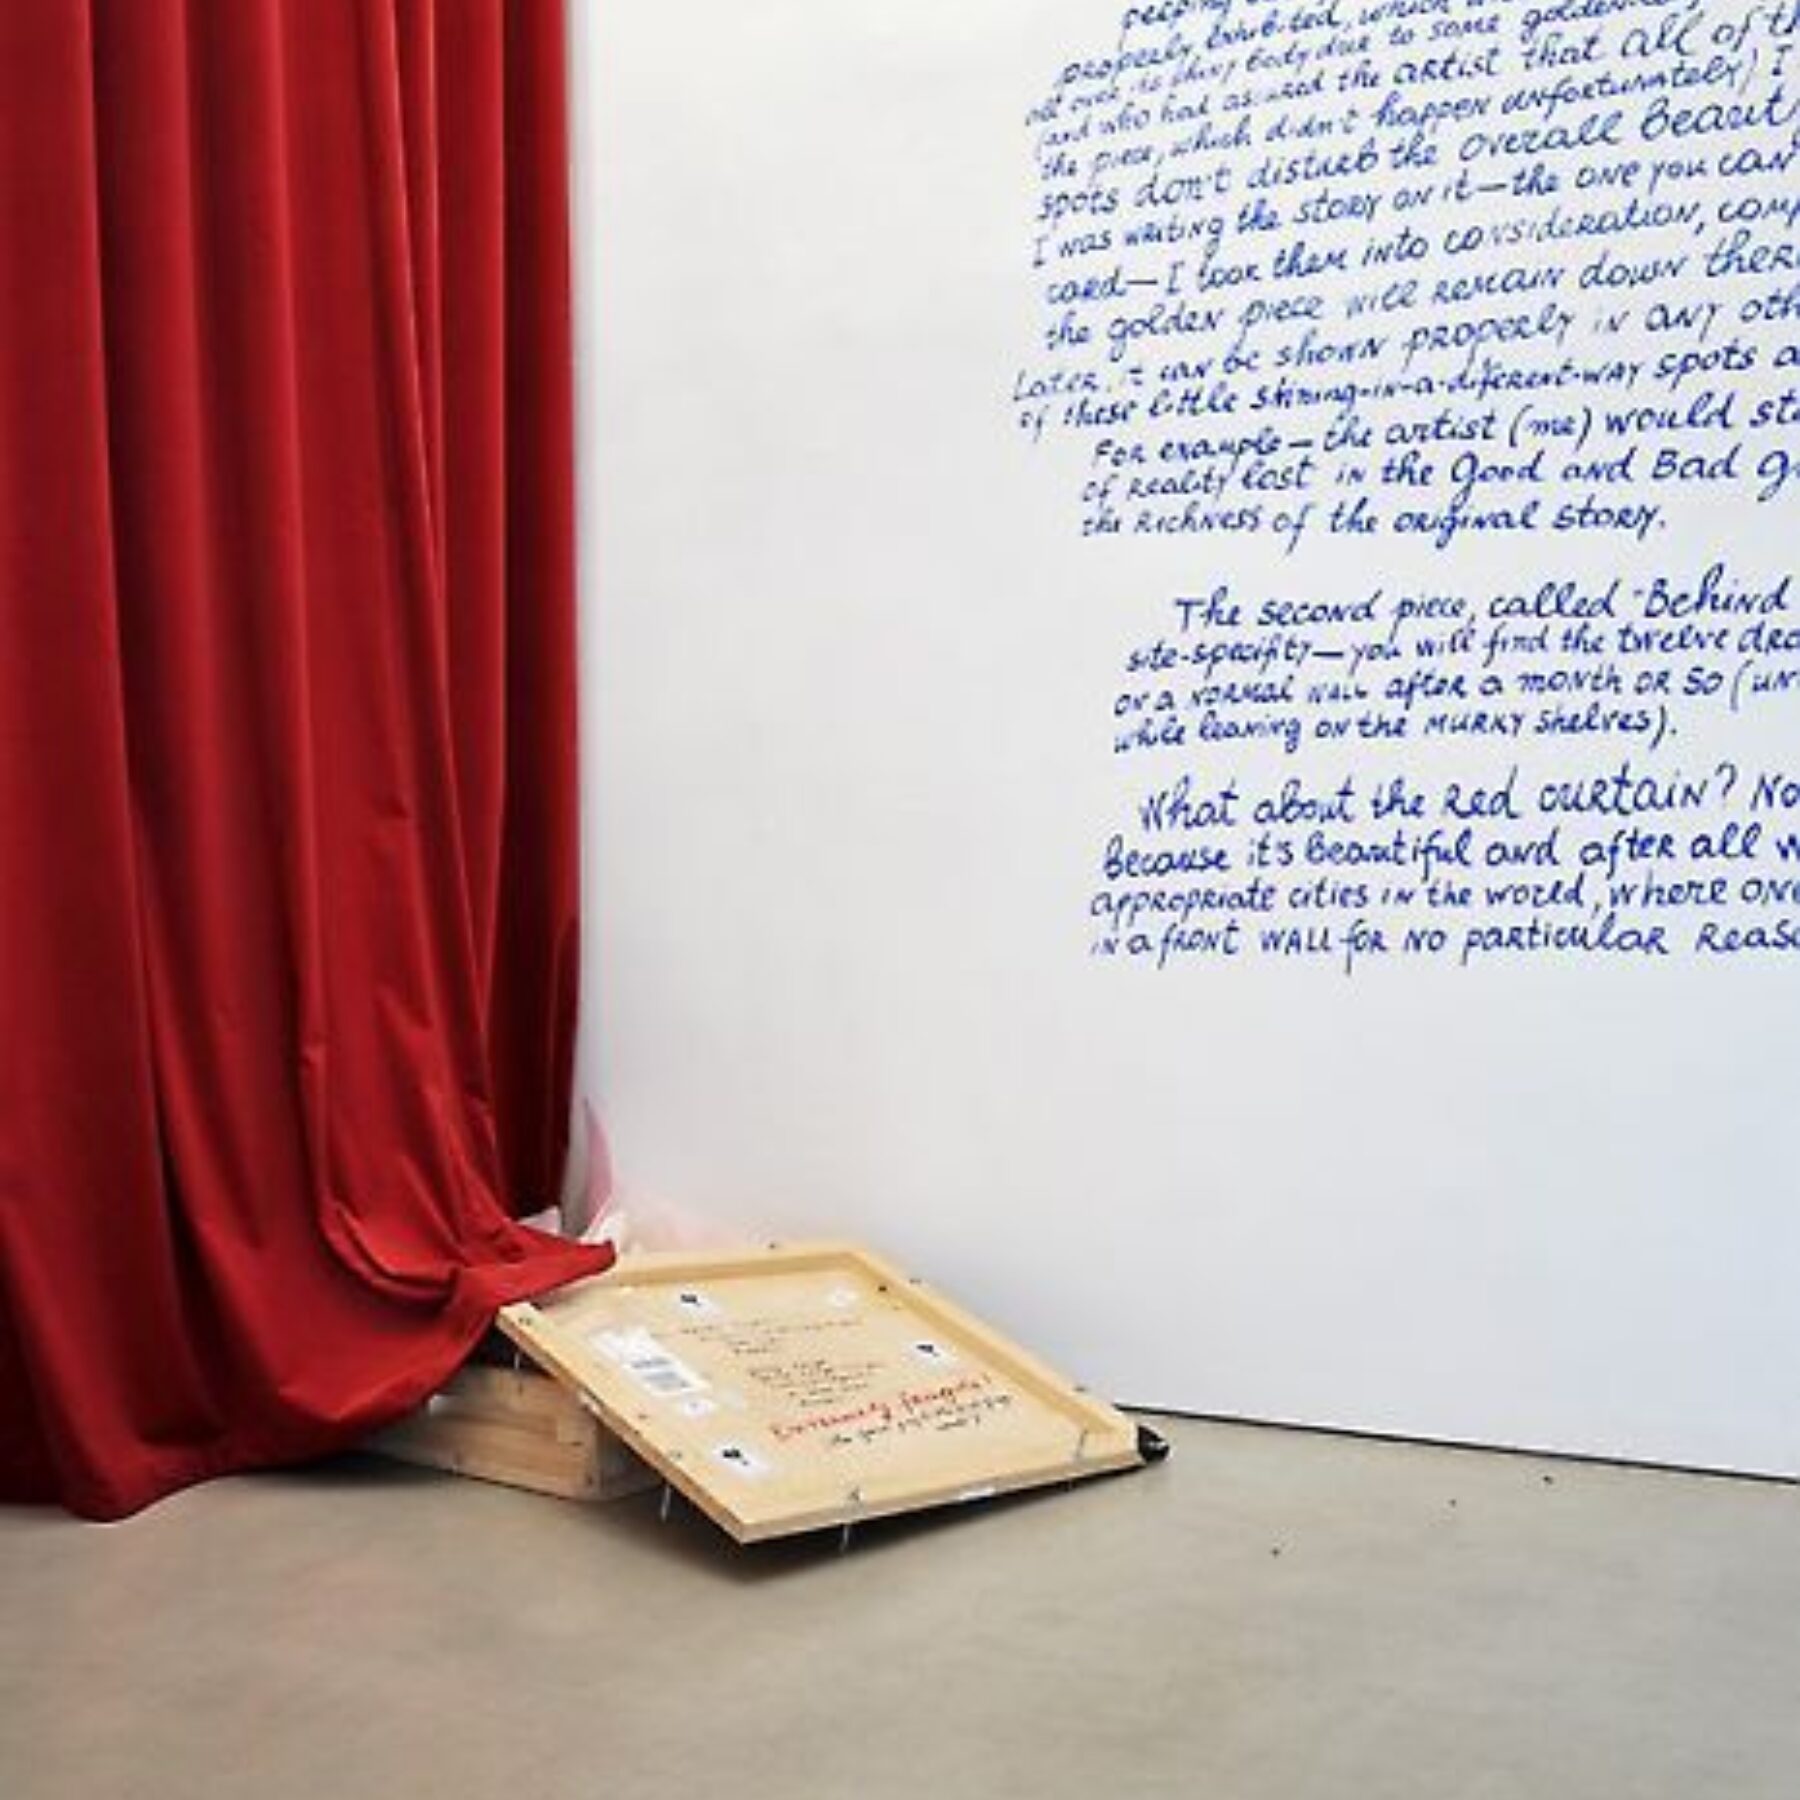 peeping
properly exhibited, which
all over its shiny body due to some golden
(and who had assured the artist that all of th
the piece, which didn't happen unfortunately) I
spots don't disturb the overall beauty
I was writing the story on it—the one you can
card—I took them into consideration, comp
the golden piece will remain down there
Later it can be shown properly in any oth
of these little shining-in-a-different-way spots a
For example—the artist (me) would sta
of reality lost in the Good and Bad g
the richness of the original story.
The second piece, called "Behind
site-specifity—you will find the twelve dra
on a normal wall after a month or so (un
while leaning on the murky shelves).
What about the red curtain? No
Because it's beautiful and after all w
appropriate cities in the world, where one
in a front wall for no particular reaso
Extremely fragile!